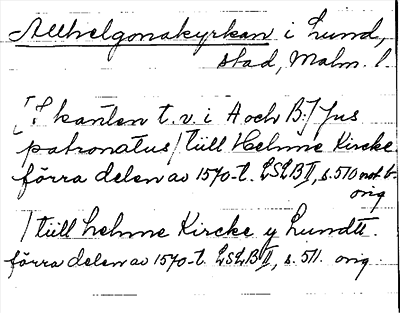 Allhelgonakyrkan i Lund,
stad, Malm. l.
[I kanten t.v. i A och B:] Jus
patronatus / tiill Helme Kircke
förra delen av 1570-t. LSLB II, s. 510 not b.
orig
/ tiill helme Kircke y Lundtt.
förra delen av 1570-t. LSLB II, s. 511. orig.